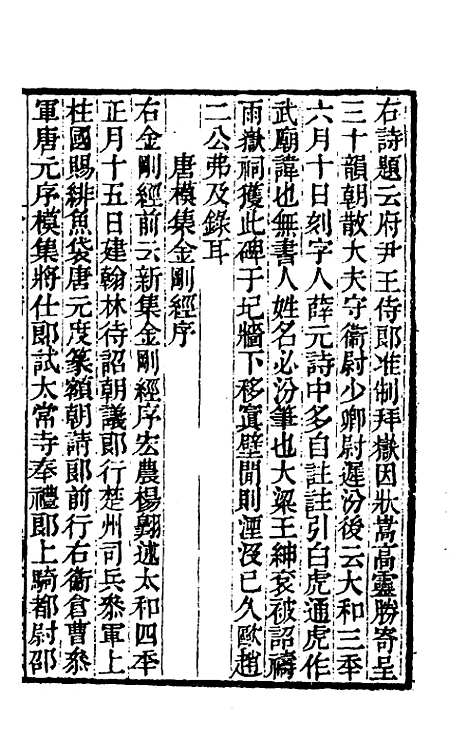 右詩題云府尹王侍郎准制拜嶽因狀嵩高靈勝寄呈
三十韻朝散大夫守衞尉少卿尉遲汾後云大和三年
六月十日刻字人薛元詩中多自註註引白虎通虎作
武廟諱也無書人姓名必汾筆也大梁王紳袞被詔禱
雨嶽祠獲此碑于圮牆下移寘壁間則湮沒已久歐趙
二公弗及錄耳
唐模集金剛經序
右金剛經前云新集金剛經序宏農楊翺述太和四年
正月十五日建翰林待詔朝議郎行楚州司兵叅軍上
柱國賜緋魚袋唐元度篆額朝請郎前行右衞倉曹叅
軍唐元序模集將仕郎試太常寺奉禮郎上騎都尉邵